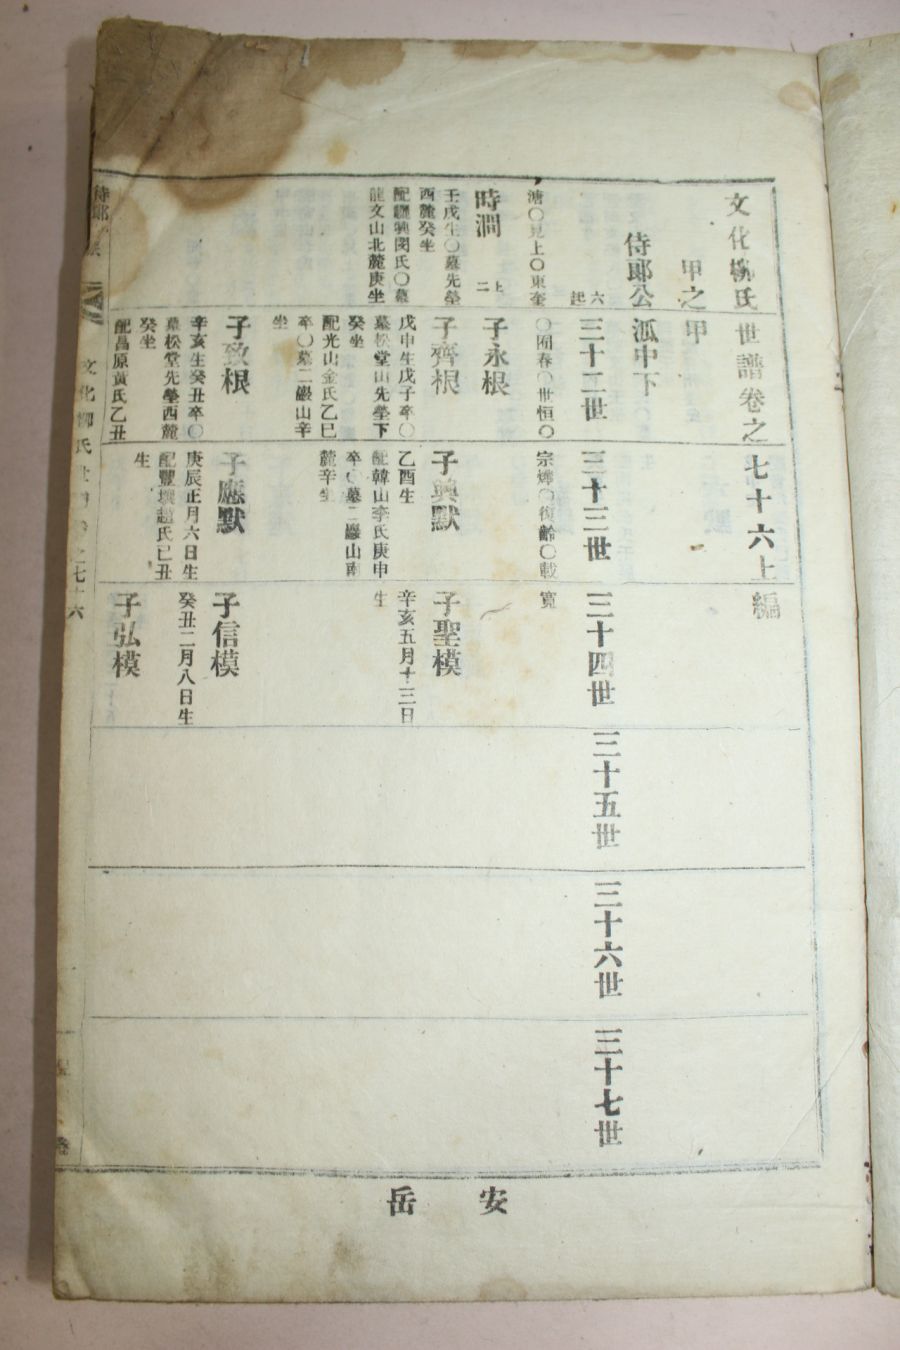 文化柳氏世譜卷之七十六上編
甲之甲
侍郞公泒中下
六
起
三十二世
三十三世
三十四世
三十五世
三十六世
三十七世
溏〇見上〇東奎
〇囿春〇世恒〇
宗燁〇復齡〇載
寬
時澗
二上
壬戌生〇墓先塋
西麓癸坐
配驪興閔氏〇墓
龍文山北麓庚坐
子永根
子齊根
戊申生戊子卒〇
墓松堂山先塋下
癸坐
配光山金氏乙巳
卒〇墓二巖山辛
坐
子興默
乙酉生
配韓山李氏庚申
卒〇墓二巖山南
麓辛坐
子聖模
辛亥五月十三日
生
子致根
辛亥生癸丑卒〇
墓松堂先塋西麓
癸坐
配昌原黃氏乙丑
子應默
庚辰正月六日生
配豐壤趙氏己丑
生
子信模
癸丑二月八日生
子弘模
侍郞
文化柳氏世譜卷之七十六
安岳